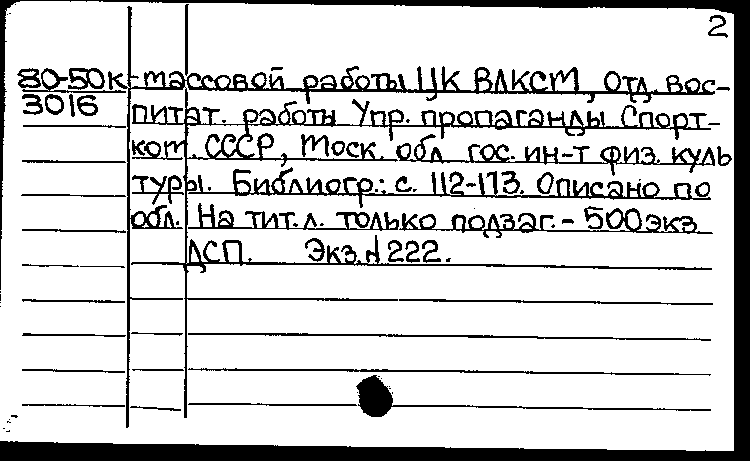 2
80-50к -массовой работы ЦК ВЛКСМ, Отд. вос-
3016 питат. работы Упр. пропаганды Спорт-
ком. СССР, Моск. обл. гос. ин-т физ. куль
туры. Библиогр.: с. 112-113. Описано по
обл. На тит. л. только подзаг. - 500 экз
ДСП. Экз. № 222.